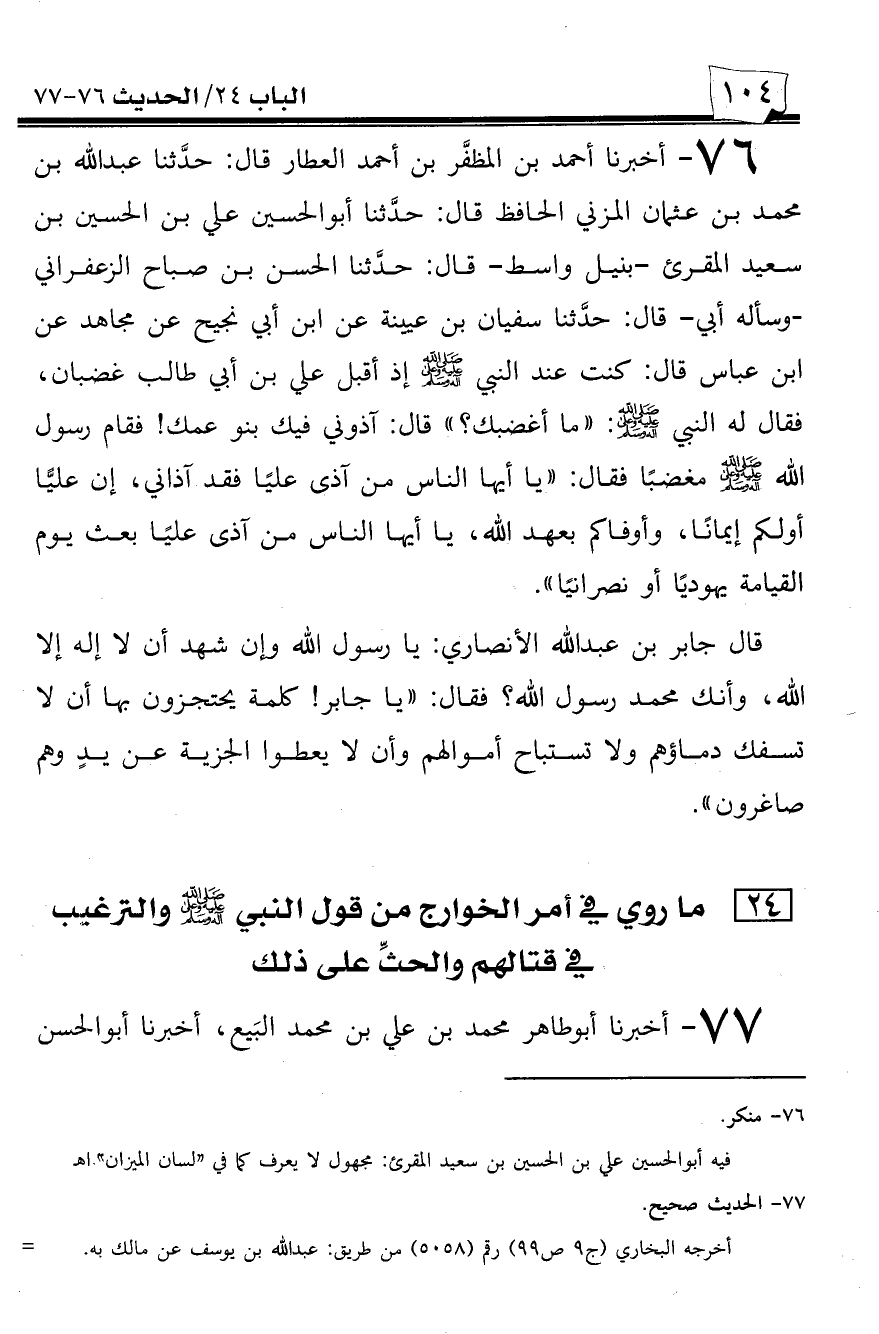 ١٠٤
الباب ٢٤/ الحديث ٧٦-٧٧
٧٦- أخبرنا أحمد بن المظفَّر بن أحمد العطار قال: حدَّثنا عبدالله بن
محمد بن عثمان المزني الحافظ قال: حدَّثنا أبوالحسين علي بن الحسين بن
سعيد المقرئ -بنيل واسط- قال: حدَّثنا الحسن بن صباح الزعفراني
-وسأله أبي- قال: حدَّثنا سفيان بن عيينة عن ابن أبي نجيح عن مجاهد عن
ابن عباس قال: كنت عند النبي ﷺ إذ أقبل علي بن أبي طالب غضبان،
فقال له النبي ﷺ: «ما أغضبك؟» قال: آذوني فيك بنو عمك! فقام رسول
الله ﷺ مغضبًا فقال: «يا أيها الناس من آذى عليًا فقد آذاني، إن عليًّا
أولكم إيمانًا، وأوفاكم بعهد الله، يا أيها الناس من آذى عليًا بعث يوم
القيامة يهوديًا أو نصرانيًا».
قال جابر بن عبدالله الأنصاري: يا رسول الله وإن شهد أن لا إله إلا
الله، وأنك محمد رسول الله؟ فقال: «يا جابر! كلمة يحتجزون بها أن لا
تسفك دماؤهم ولا تستباح أموالهم وأن لا يعطوا الجزية عن يدٍ وهم
صاغرون».
٢٤ ما روي في أمر الخوارج من قول النبي ﷺ والترغيب
في قتالهم والحثِّ على ذلك
٧٧- أخبرنا أبوطاهر محمد بن علي بن محمد البَيع، أخبرنا أبوالحسن
٧٦- منكر.
فيه أبوالحسين علي بن الحسين بن سعيد المقرئ: مجهول لا يعرف كما في «لسان الميزان».اهـ
٧٧- الحديث صحيح.
أخرجه البخاري (ج٩ ص٩٩) رقم (٥٠٥٨) من طريق: عبدالله بن يوسف عن مالك به. =